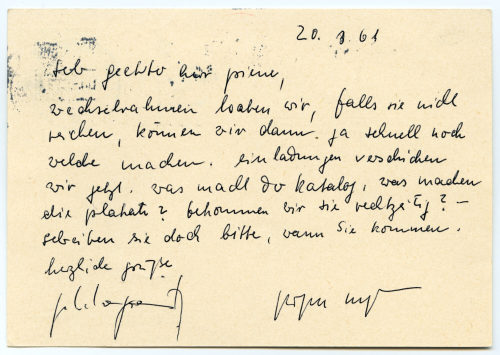 20. 3. 61
sehr geehrter herr piene,
wechselrahmen haben wir, falls sie nicht
reichen, können wir dann ja schnell noch
welche machen. einladungen verschicken
wir jetzt. was macht der katalog, was machen
die plakate? bekommen wir sie rechtzeitig? –
schreiben sie doch bitte, wann Sie kommen.
herzliche grüße